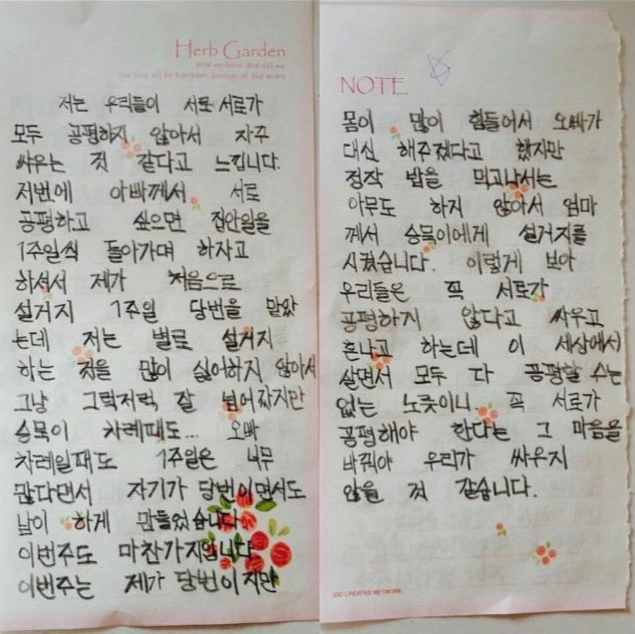 Herb Garden
저는 우리들이 서로 서로가
모두 공평하지 않아서 자주
싸우는 것 같다고 느낍니다.
저번에 아빠께서 서로
공평하고 싶으면 집안일을
1주일씩 돌아가며 하자고
하셔서 제가 처음으로
설거지 1주일 당번을 맡았
는데 저는 별로 설거지
하는 것을 많이 싫어하지 않아서
그냥 그럭저럭 잘 넘어갔지만
승목이 차례때도... 오빠
차례일때도 1주일은 너무
많다면서 자기가 당번이면서도
남이 하게 만들었습니다.
이번주도 마찬가지입니다.
이번주는 제가 당번이지만
NOTE
몸이 많이 힘들어서 오빠가
대신 해주겠다고 했지만
정작 밥을 먹고나서는
아무도 하지 않아서 엄마
께서 승목이에게 설거지를
시켰습니다. 이렇게 보아
우리들은 꼭 서로가
공평하지 않다고 싸우고
혼나고 하는데 이 세상에서
살면서 모두 다 공평할 수는
없는 노릇이니. 꼭 서로가
공평해야 한다는 그 마음을
바꿔야 우리가 싸우지
않을 것 같습니다.
CREATIVE NETWORK